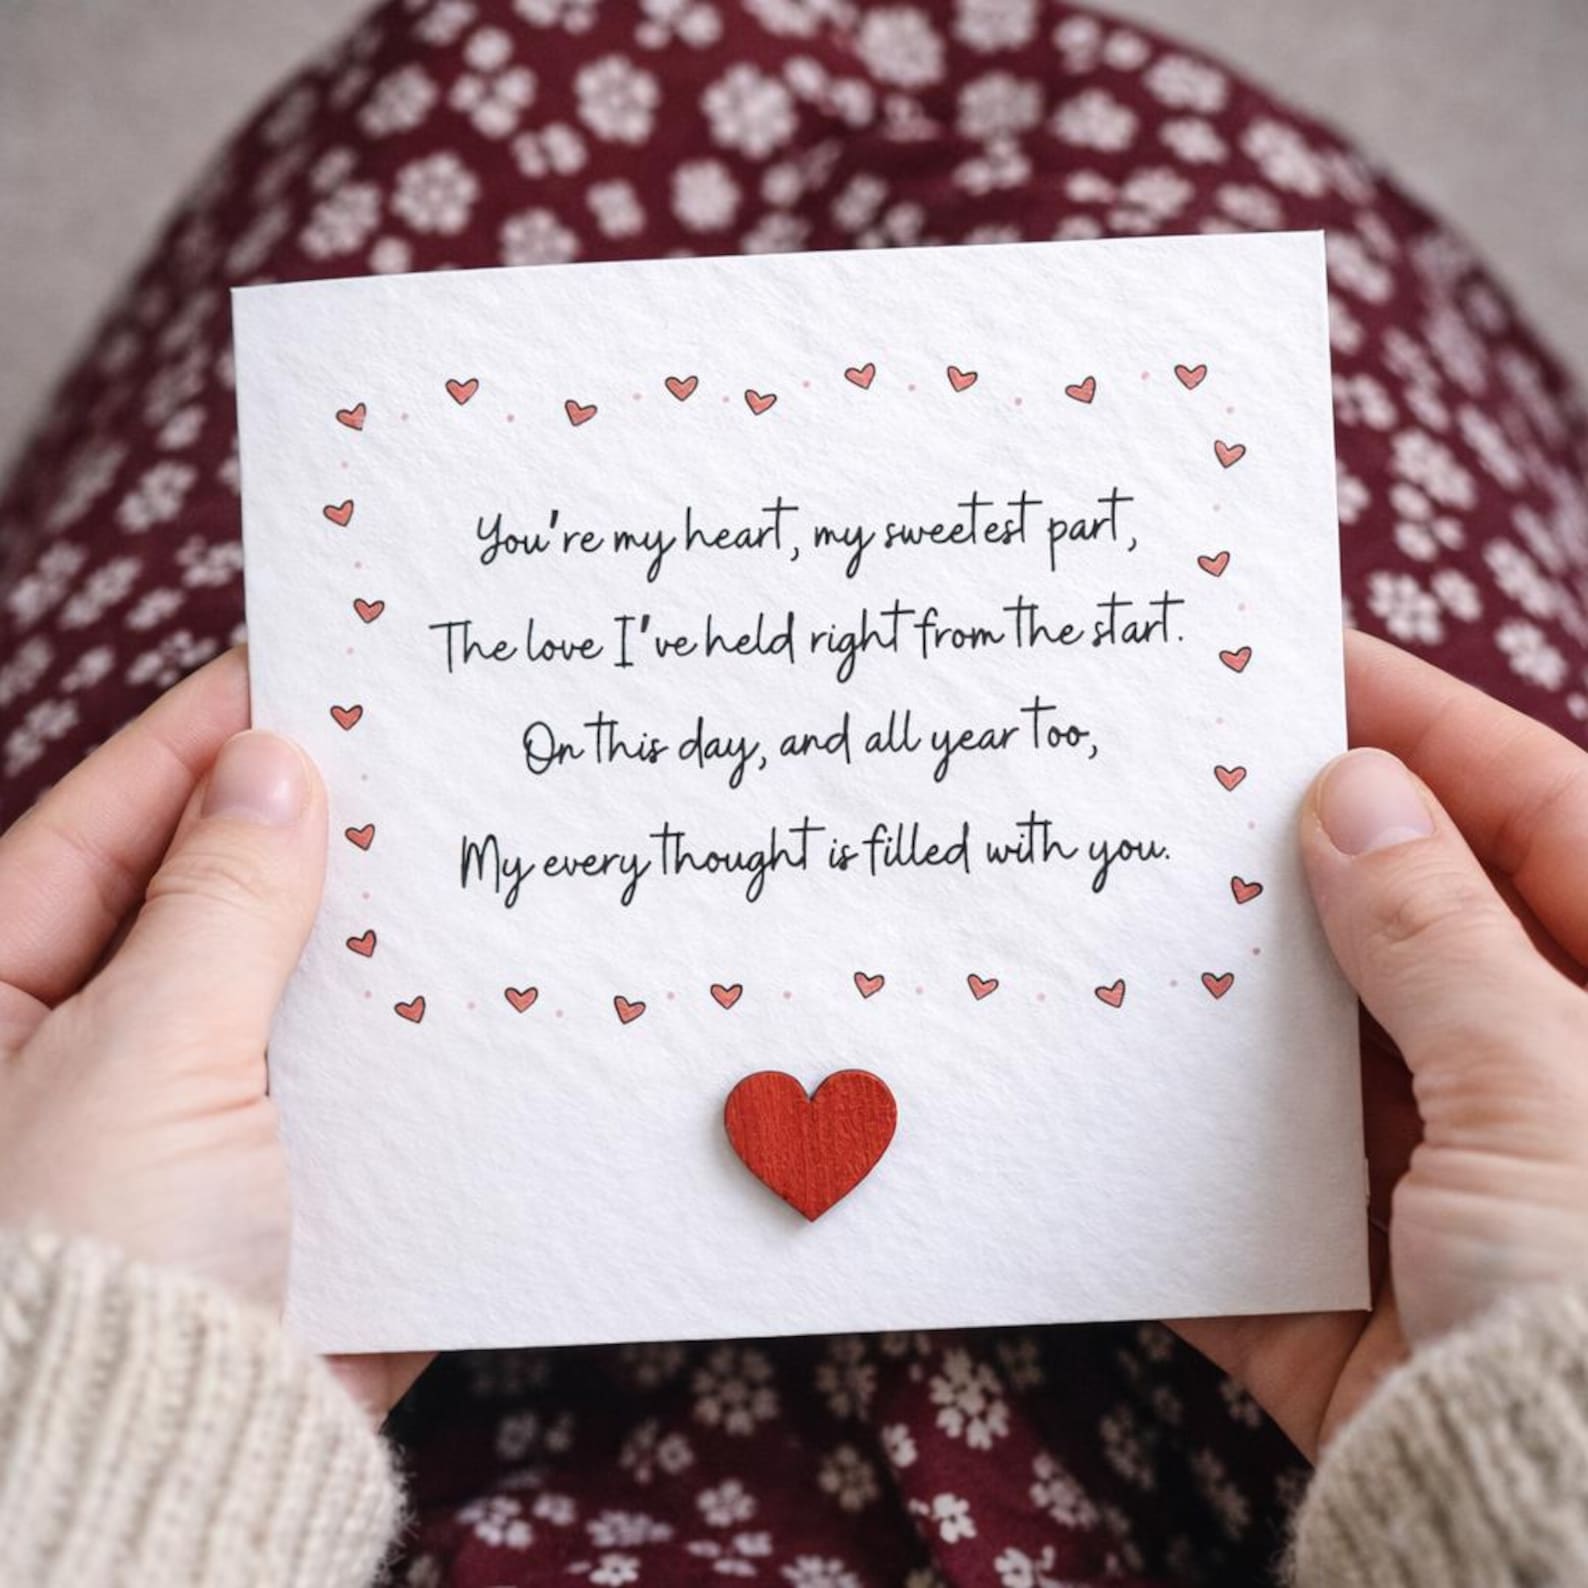 You're my heart, my sweetest part,
The love I've held right from the start.
On this day, and all year too,
My every thought is filled with you.